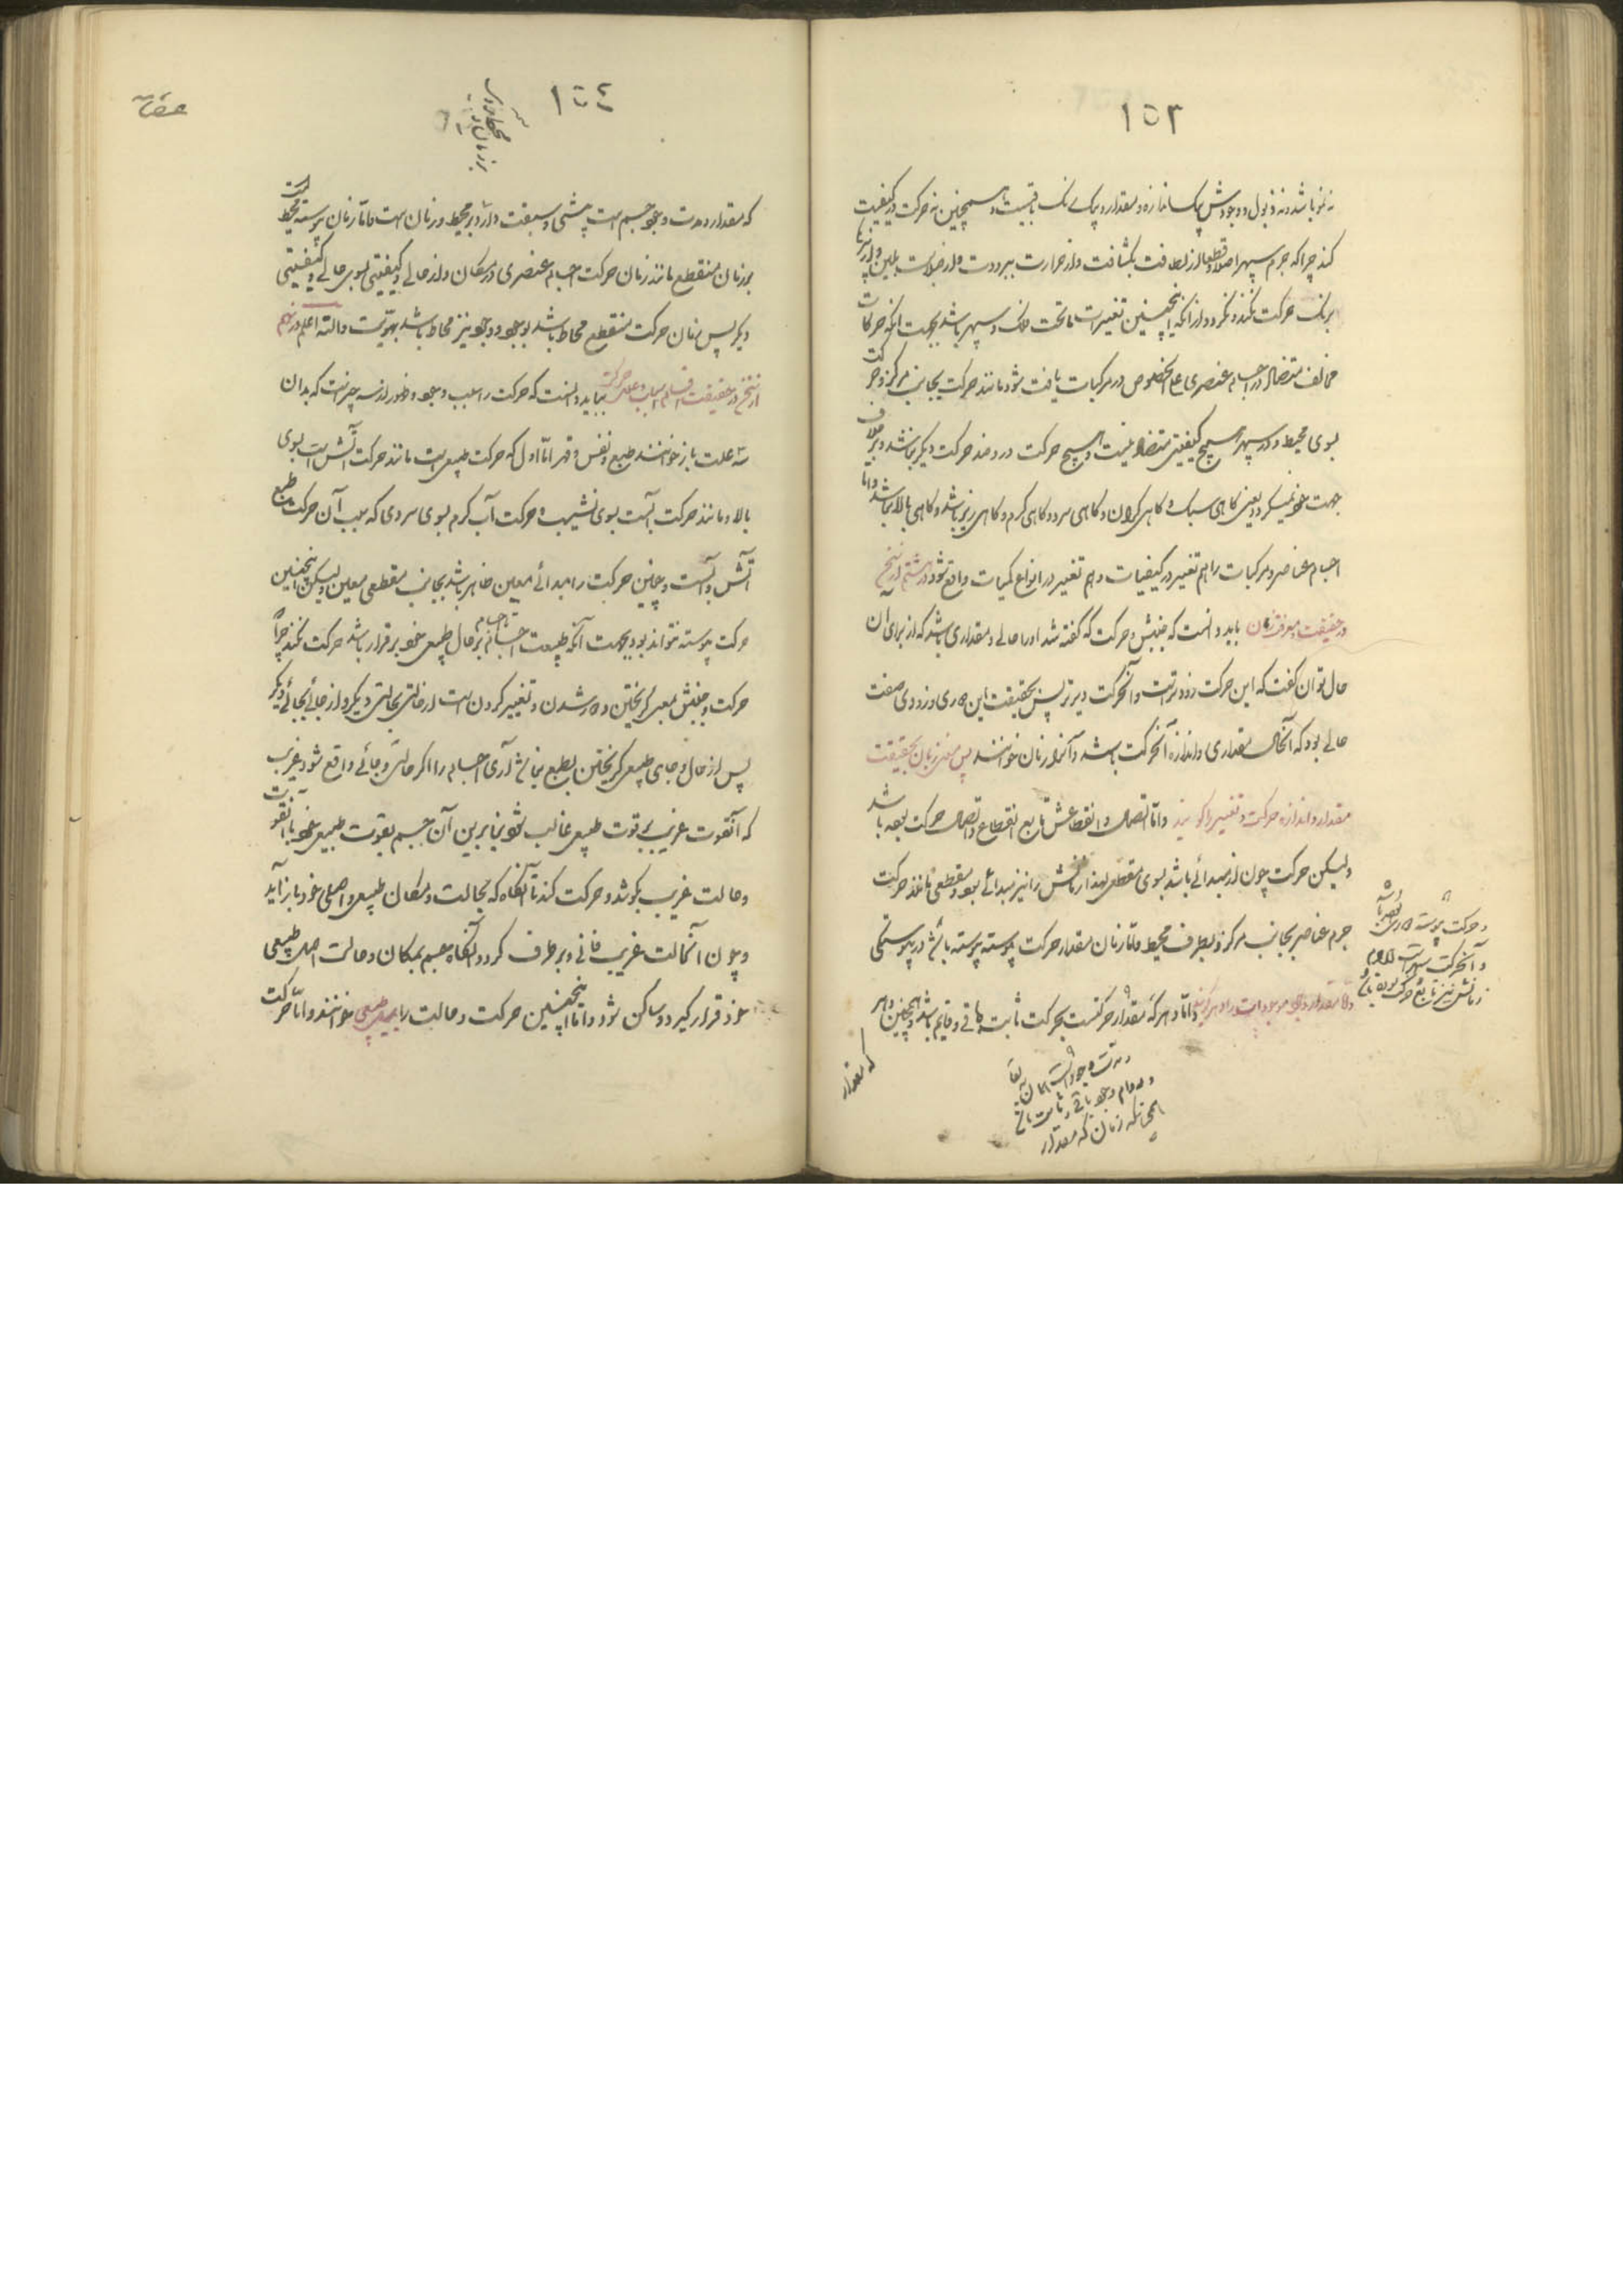 ١٥٣
نه نمو باشد و نه ذبول و وجودش پیک اندازه و مقدار و پیک رنگ باقیست و همچنین نه حرکت در کیفیت
کند چرا که جرم سپهر اصلا و قطعا از لطافت بکثافت و از حرارت ببرودت و از صلابت بلین و از
برنگ حرکت نکند و نگردد از آنکه اینچنین تغییرات ما تحت فلک و سپهر باشد بجهت آنکه حرکات
مخالف متضاد در اجسام عنصری علی الخصوص در مرکبات یافت شود مانند حرکت بجانب مرکز و حرکت
بسوی محیط و در سپهر هیچ کیفیتی متضاد نیست و هیچ حرکت در و ضد حرکت دیگر نباشد و بر خلاف
جهت خود نمیگردد یعنی گاهی سبک و گاهی گران و گاهی سرد و گاهی گرم و گاهی زیر باشد و گاهی بالا نباشد و اما
اجسام عناصر و مرکبات را هم تغییر در کیفیات و هم تغییر در انواع کمیات واقع شود در هشتم از نتخ
در حقیقت و معرفت زمان باید دانست که جنبش و حرکت که گفته شد او را حالی و مقداری باشد که از برای آن
حال توان گفت که این حرکت زودتر است و آنحرکت دیرتر پس بحقیقت این دیری و زودی صفت
حالی بود که آنحال مقداری و اندازه آنحرکت باشد و آنرا زمان خوانند پس معنی زمان بحقیقت
مقدار و اندازه حرکت و تغییر را گویند و اما اتصال و انقطاعش تابع انقطاع و اتصال حرکت بوده باشد
ولیکن حرکت چون از مبدائی باشد بسوی مقطعی لهذا زمانش را نیز مبدائی بود و مقطعی مانند حرکت
جرم عناصر بجانب مرکز و بطرف محیط و اما زمان مقدار حرکت پیوسته پیوسته باشد در پیوستگی
و اما دهر که مقدار حرکتست بحرکت ثابت و باقی و قایم باشد و همچنین دهر
و حرکت پیوسته
و آنحرکت
زمانش نیز تابع حرکت بوده باشد
مدت وجود است
و مدام وجود باقی و ثابت باشد
همچنانکه زمان که مقدار
که مقدار
١٥٤
که مقدار و مدت وجود جسم است پیشی و سبقت دارد بر محیط و زمان است و اما زمان پیوسته محیط است
بر زمان منقطع مانند زمان حرکت اجسام عنصری در مکان و از حالی و کیفیتی بسوی حالی و کیفیتی
دیگر پس زمان حرکت منقطع محاط باشد بوجود و وجود نیز محاط باشد بهویت و الله اعلم در نهم
از نتخ در حقیقت اقسام اسباب و علل حرکت بباید دانست که حرکت را سبب وجود و ظهور از سه چیز است که بدان
سه علت باز خوانند طبع و نفس و قهر اما اول که حرکت طبیعی است مانند حرکت آتش است بسوی
بالا و مانند حرکت آبست بسوی نشیب و حرکت آب گرم بسوی سردی که سبب آن حرکت طبع
آتش و آبست و چنین حرکت را مبدائی معین ظاهر باشد بجانب مقطعی معین ولیکن اینچنین
حرکت پیوسته نتواند بود بجهت آنکه طبیعت اجسام تا بر حال طبیعی خود برقرار باشد حرکت نکند چرا که
حرکت و جنبش بمعنی گریختن و دور شدن و تغییر کردن است از حالتی بحالتی دیگر و از جائی بجائی دیگر
پس از حال و جای طبیعی گریختن بطبع نباشد آری اجسام را اگر حالتی و جائی واقع شود غریب
که آنقوت غریب بر قوت طبیعی غالب شود بنابرین آن جسم بقوت طبیعی خود با آنقوت
و حالت غریب بکوشد و حرکت کند تا آنگاه که بحالت و مکان طبیعی و اصلی خود باز آید
و چون آنحالت غریب فانی و برطرف گردد آنگاه جسم بمکان و حالت اصلی طبیعی
خود قرار گیرد و ساکن شود و اما اینچنین حرکت و حالت را میل طبیعی خوانند و اما حرکت